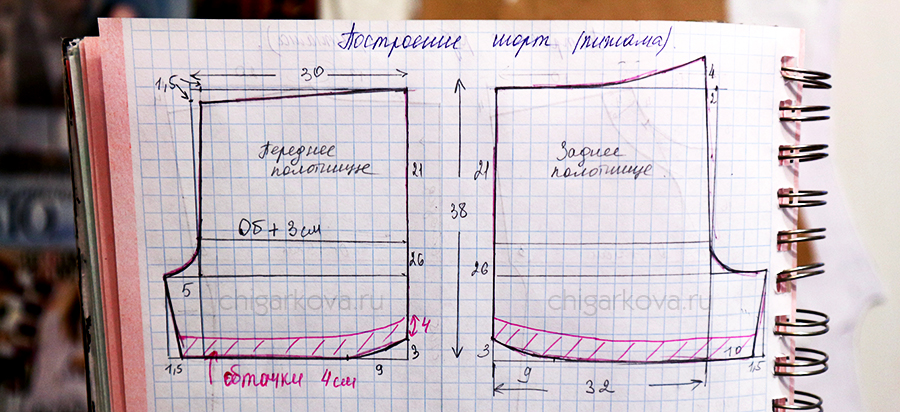 Построение шорт (пижама).
30
1,5
4
2
Переднее
полотнище
Заднее
полотнище
21
21
38
Об + 3 см
26
26
5
chigarkova.ru
chigarkova.ru
4
3
3
10
1,5
9
9
1,5
обтачки 4 см
32